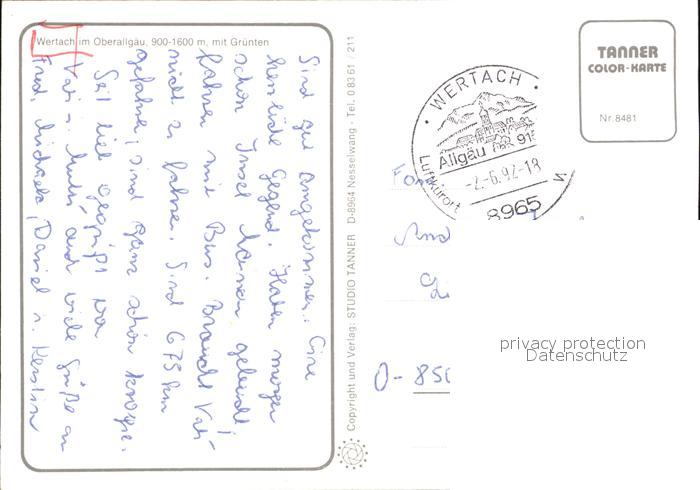 Wertach im Oberallgäu, 900-1600 m, mit Grünten
Sind gut angekommen. Eine
herrliche Gegend. Haben morgen
schon Insel Mainau gebucht,
fahren mit Bus. Braucht Vati
nicht zu fahren. Sind 675 km
gefahren, sind ganz schön knorpe.
Seit lieb gegrüßt von
Vati u. Mutti, auch viele Grüße an
Fred, Michaela, Daniel u. Kerstin
Copyright und Verlag: STUDIO TANNER D-8964 Nesselwang · Tel. 0 83 61 / 211
TANNER
COLOR-KARTE
Nr. 8481
· WERTACH ·
Allgäu 915
-2.-6.92-18
Luftkurort
8965
And
O-850
privacy protection
Datenschutz